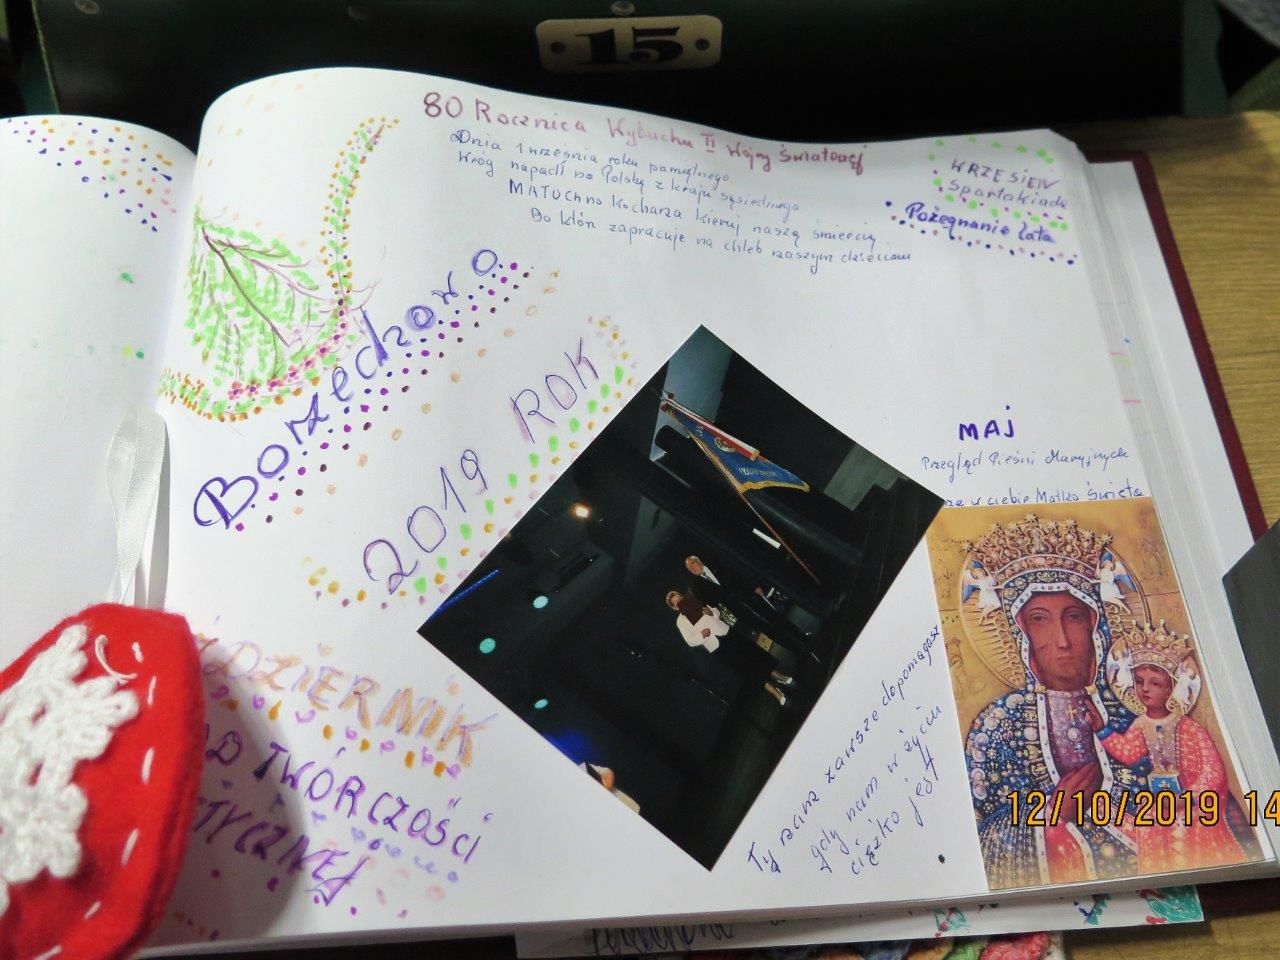 15
80 Rocznica Wybuchu II Wojny Światowej
Dnia 1 września roku pamiętnego
Wróg napadł na Polskę z kraju sąsiedniego
MATUCHno Kieruj naszą
zapracuje na chleb naszym dzieciom
WRZESIEŃ
Spartakiada
Pożegnanie lata
Borzędzowo
2019 ROK
MAJ
Przegląd Pieśni Maryjnych
w ciebie Matko Święta
Ty zawsze dopomagasz
gdy nam w życiu
ciężko jest
ŹDZIERNIK
TWÓRCZOŚCI
TYCZNEJ
12/10/2019 14